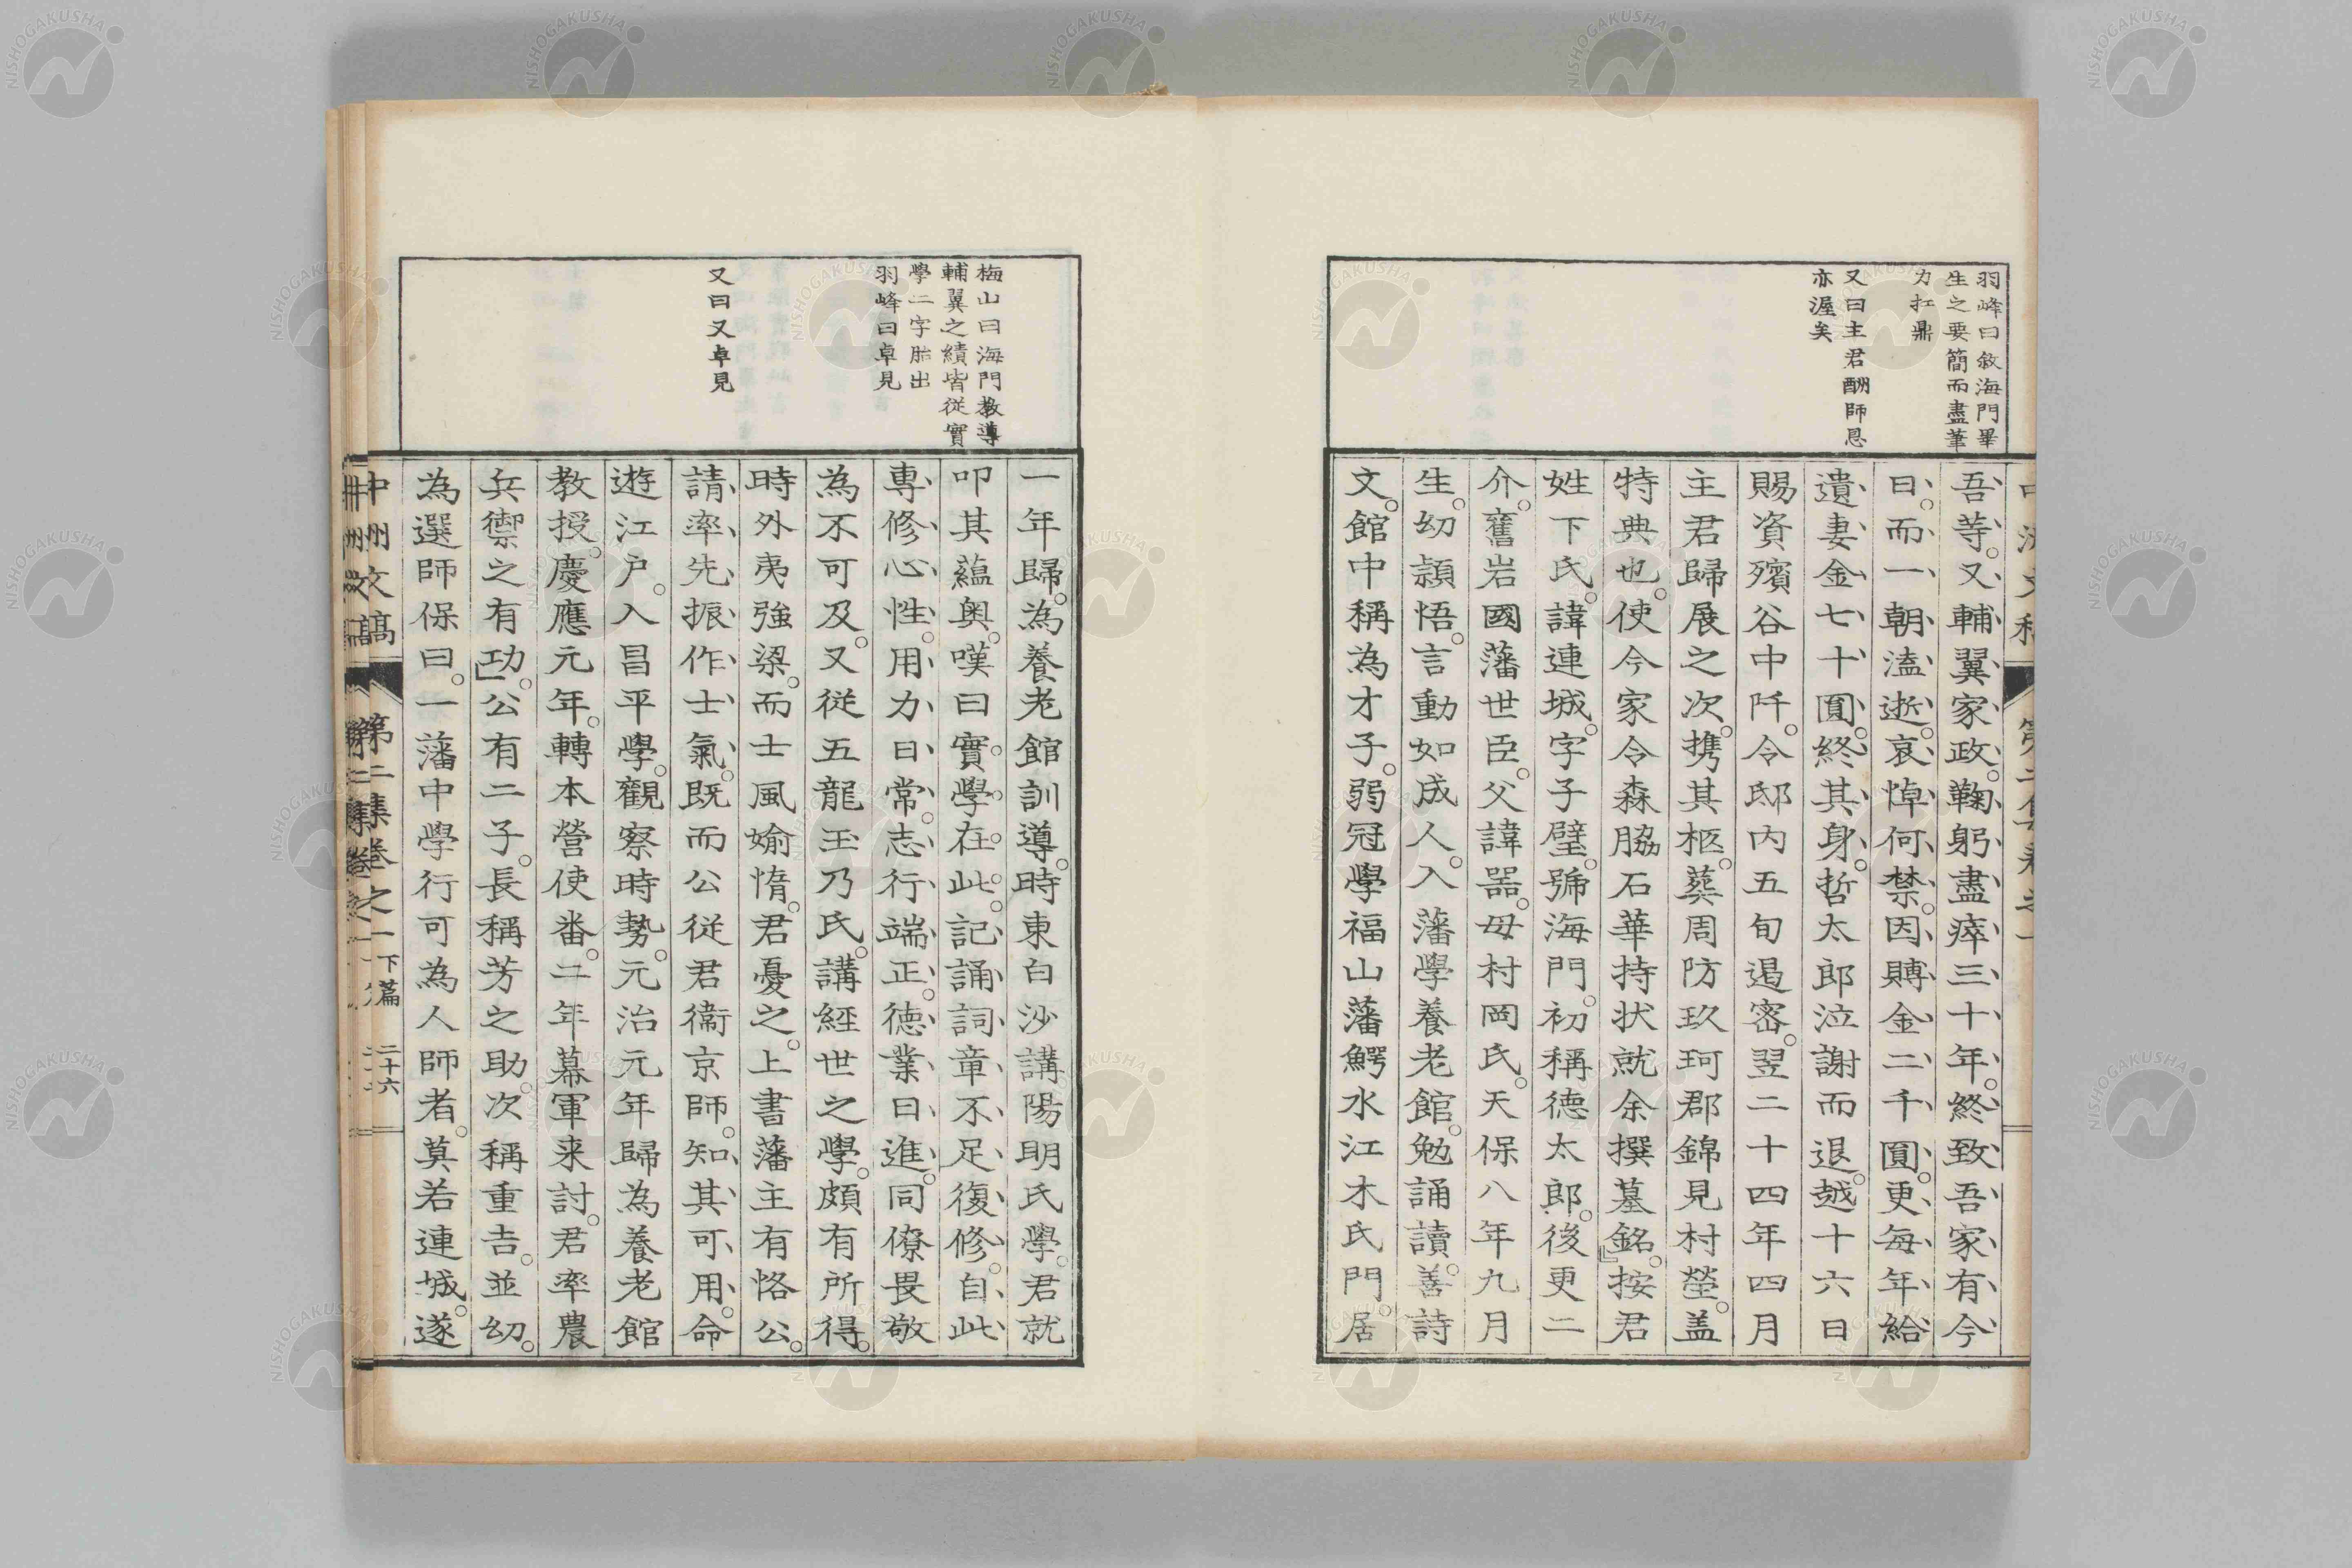 羽峰曰敘海門畢
生之要簡而盡筆
力扛鼎
又曰主君酬師恩
亦渥矣
吾等。又輔翼家政。鞠躬盡瘁三十年。終致吾家有今
日。而一朝溘逝。哀悼何禁。因賻金二千圓。更每年給
遺妻金七十圓。終其身。哲太郎泣謝而退。越十六日
賜資殯谷中阡。令邸内五旬遏密。翌二十四年四月
主君歸展之次。携其柩。葬周防玖珂郡錦見村塋。盖
特典也。使今家令森脇石華持状就余撰墓銘。』按君
姓下氏。諱連城。字子璧。號海門。初稱德太郎。後更二
介。舊岩國藩世臣。父諱器。母村岡氏。天保八年九月
生。幼頴悟。言動如成人。入藩學養老館。勉誦讀。善詩
文。館中稱為才子。弱冠學福山藩鰐水江木氏門。居
梅山曰海門教導
輔翼之績皆従實
學二字胎出
羽峰曰卓見
又曰又卓見
一年歸。為養老館訓導。時東白沙講陽明氏學。君就
叩其蘊奥。嘆曰實。學。在。此。記誦詞章不足復修。自此
專修心性。用力日常。志行端正。德業日進。同僚畏敬
為不可及。又従五龍玉乃氏。講經世之學。頗有所得。
時外夷強梁。而士風婾惰。君憂之。上書藩主有恪公。
請率先振作士氣。既而公従君衞京師。知其可用。命
遊江户。入昌平學。觀察時勢。元治元年歸為養老館
教授。慶應元年。轉本營使番。二年幕軍来討。君率農
兵禦之有功。』公有二子。長稱芳之助。次稱重吉。並幼。
為選師保曰。一藩中學行可為人師者。莫若連城。遂
中洲文稿 第二集卷之一下篇 二十六